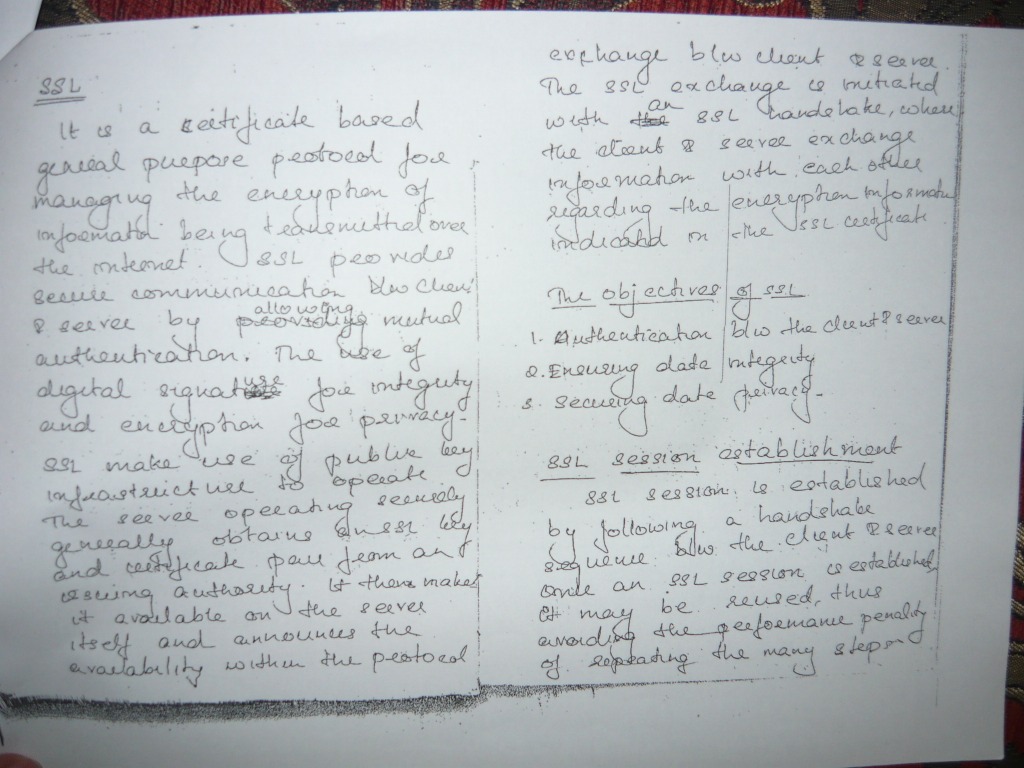 SSL
It is a certificate based
general purpose protocol for
managing the encryption of
information being transmitted over
the internet. SSL provides
secure communication b/w client
& server by allowing mutual
authentication. The use of
digital signature for integrity
and encryption for privacy.
SSL make use of public key
infrastructure to operate
The server operating securely
generally obtains an SSL key
and certificate pair from an
issuing authority. It then makes
it available on the server
itself and announces the
availability within the protocol
exchange b/w client & server.
The SSL exchange is initiated
with an SSL handshake, where
the client & server exchange
information with each other
regarding the encryption informatn
indicated in the SSL certificate
The objectives of SSL
1. Authentication b/w the client & server
2. Ensuring data integrity
3. Securing data privacy.
SSL session establishment
SSL session is established
by following a handshake
sequence b/w the client & server
once an SSL session is established,
it may be reused, thus
avoiding the performance penality
of repeating the many steps